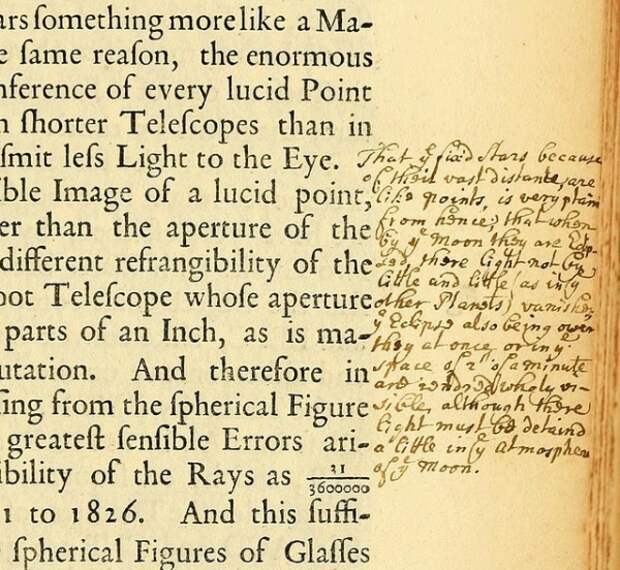 ars ſomething more like a Ma-
e ſame reaſon, the enormous
nference of every lucid Point
n ſhorter Teleſcopes than in
ſmit leſs Light to the Eye.
ible Image of a lucid point,
er than the aperture of the
different refrangibility of the
oot Teleſcope whoſe aperture
parts of an Inch, as is ma-
utation. And therefore in
ing from the ſpherical Figure
greateſt ſenſible Errors ari-
ibility of the Rays as 31/3600000
1 to 1826. And this ſuffi-
ſpherical Figures of Glaſſes
That yͤ fixed stars because
of their vast distance, are
like points, is very plain
from hence; that when
by yͤ Moon they are Eclip-
sed, there light not by
little and little (as in yͤ
other Planets) vanishes,
yͤ Eclipse also being over
they at once, or in yͤ
space of 2" of a minute
are rendred wholy vi-
sible, although there
light must be detaind
a little in yͤ Atmosphere
of yͤ Moon.